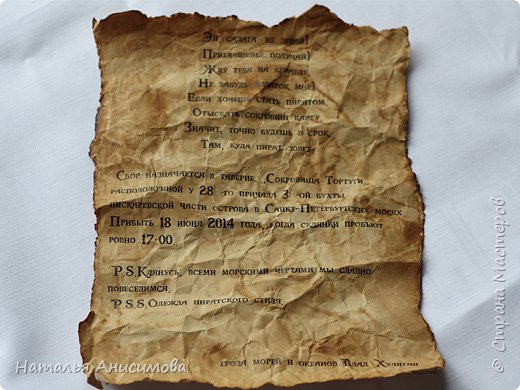 Эй, салага не зевай!
Приглашенье получай!
Жду тебя на корабле,
Не забудь подарок мне!
Если хочешь стать пиратом,
Отыскать сокровищ карту
Значит, точно будешь в срок,
Там, куда пират зовет.
Сбор назначается в таверне ,,Сокровища Тортуги,,
расположенной у 28 -го причала 3 -ой бухты
пискаревской части острова в Санкт-Петербургских морях
Прибыть 18 июня 2014 года, когда склянки пробьют
ровно 17-00.
P.S.Клянусь, всеми морскими чертями мы славно
повеселимся.
P.S.S.Одежда пиратского стиля.
гроза морей и океанов Влад Хулиган
Наталья Анисимова
© Страна Мастеров